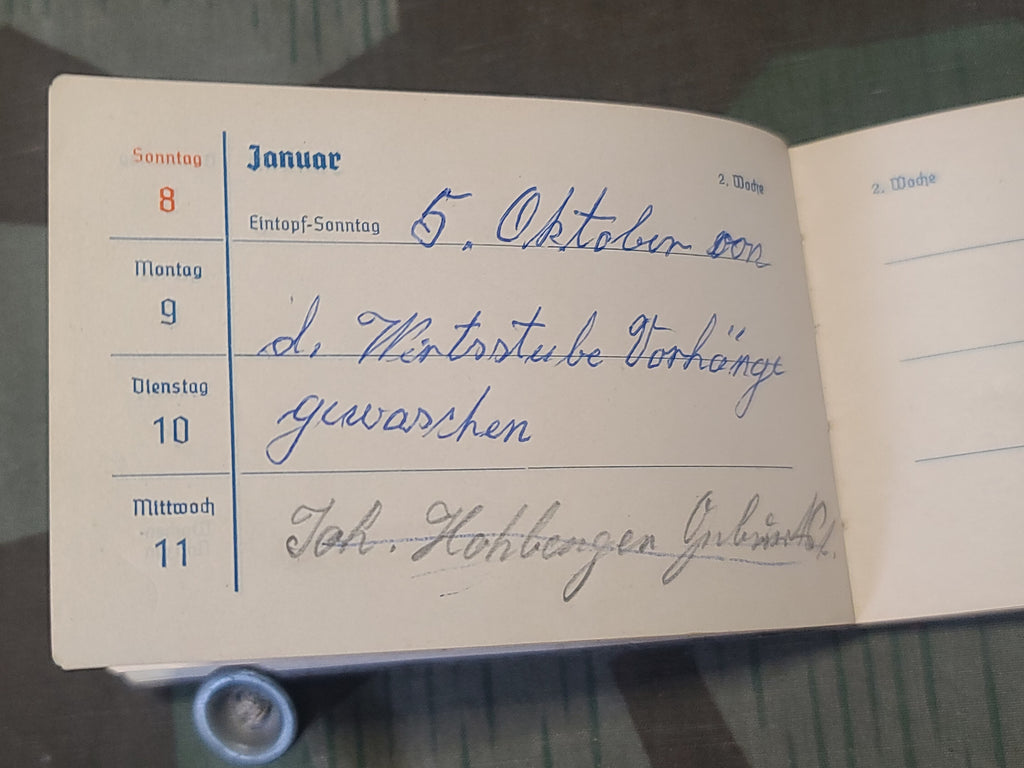 Sonntag
8
Januar
2. Woche
Eintopf-Sonntag
5. Oktober von
Montag
9
d. Wirtsstube Vorhänge
Dienstag
10
gewaschen
Mittwoch
11
Joh. Hohberger Geburtst.
2. Woche